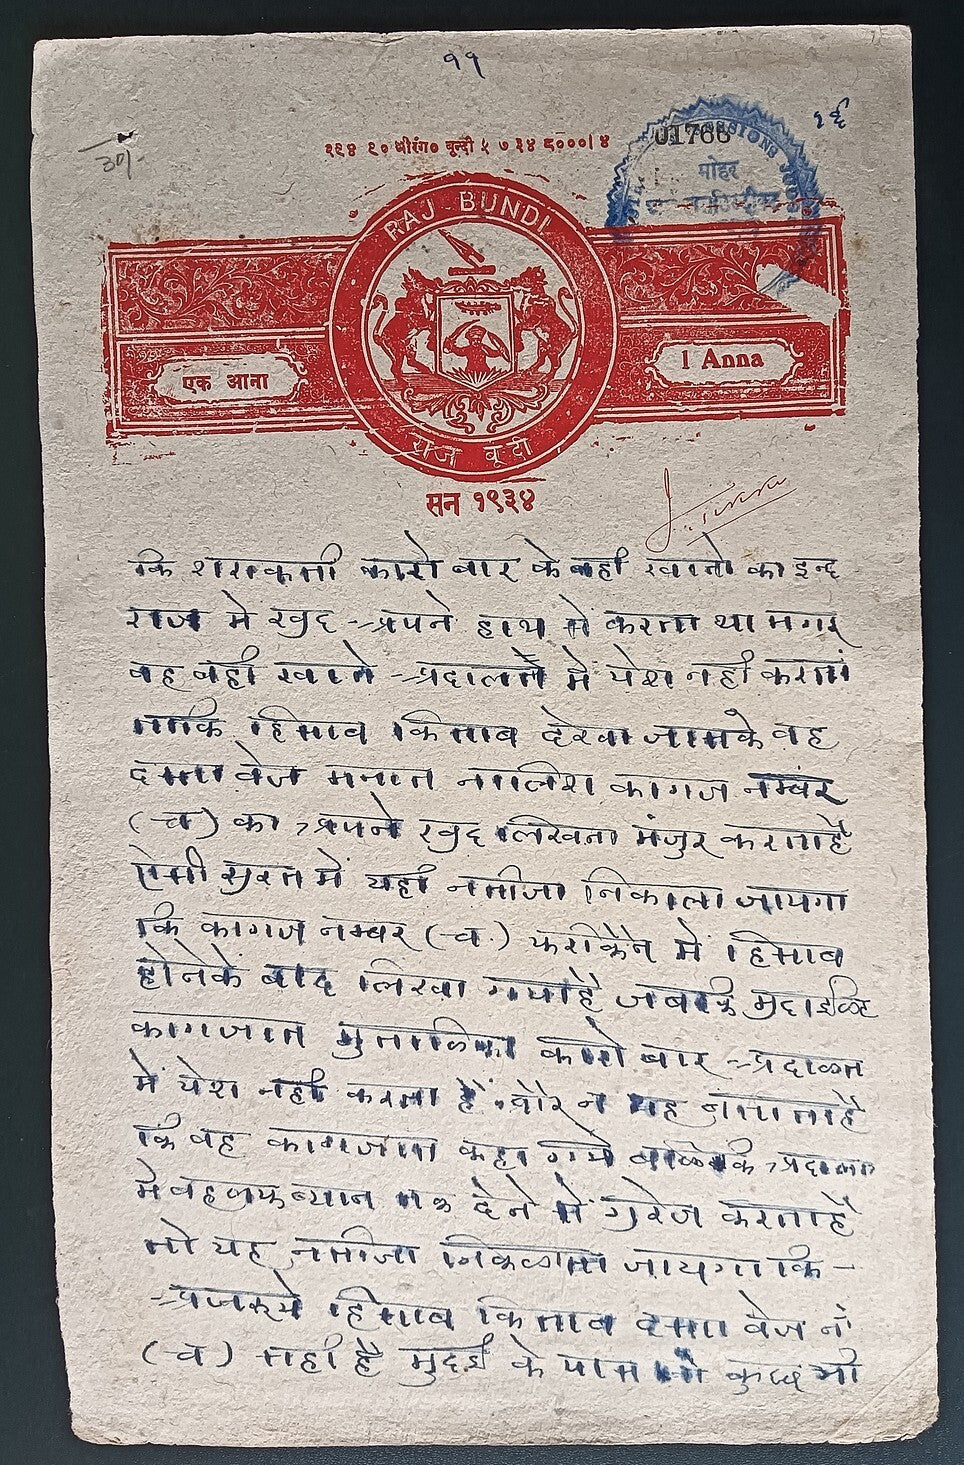 ११
१६
३०/-
१९४ ९० श्रीरंग० बून्दी ५ ७ ३४ ८०००|४
01766
SESSIONS JUD
मोहर
RAJ BUNDI
एक आना
1 Anna
राज बूंदी
सन १९३४
कि शराकती कारो बार के वही खातो का इन्द
राज मे खुद अपने हाथ से करता था मगर
वह वही खाते अदालत में पेश नही करता
ताकि हिसाब किताब देखा जासके वह
दस्ता वेज मनात नालिश कागज नम्बर
(च) का अपने खुद लिखना मंजुर करता है
ऐसी सुरत में यही नतीजा निकाला जायगा
कि कागज नम्बर (च.) फरीकैन मे हिसाब
होनेके बाद लिखा गया है जबकि मुद्दाइलेह
कागजात मुतालिका कारो बार अदालत
में पेश नही करता है और न यह बताता है
कि वह कागजात कहा गये बल्के कि अदालत
मे वह जब ब्यान तक देने से गुरेज करता है
तो यह नतीजा निकाला जायगा कि -
अजरूये हिसाब किताब दस्ता वेज नं
(च) सही है मुद्दई के पास जो कुछ भी